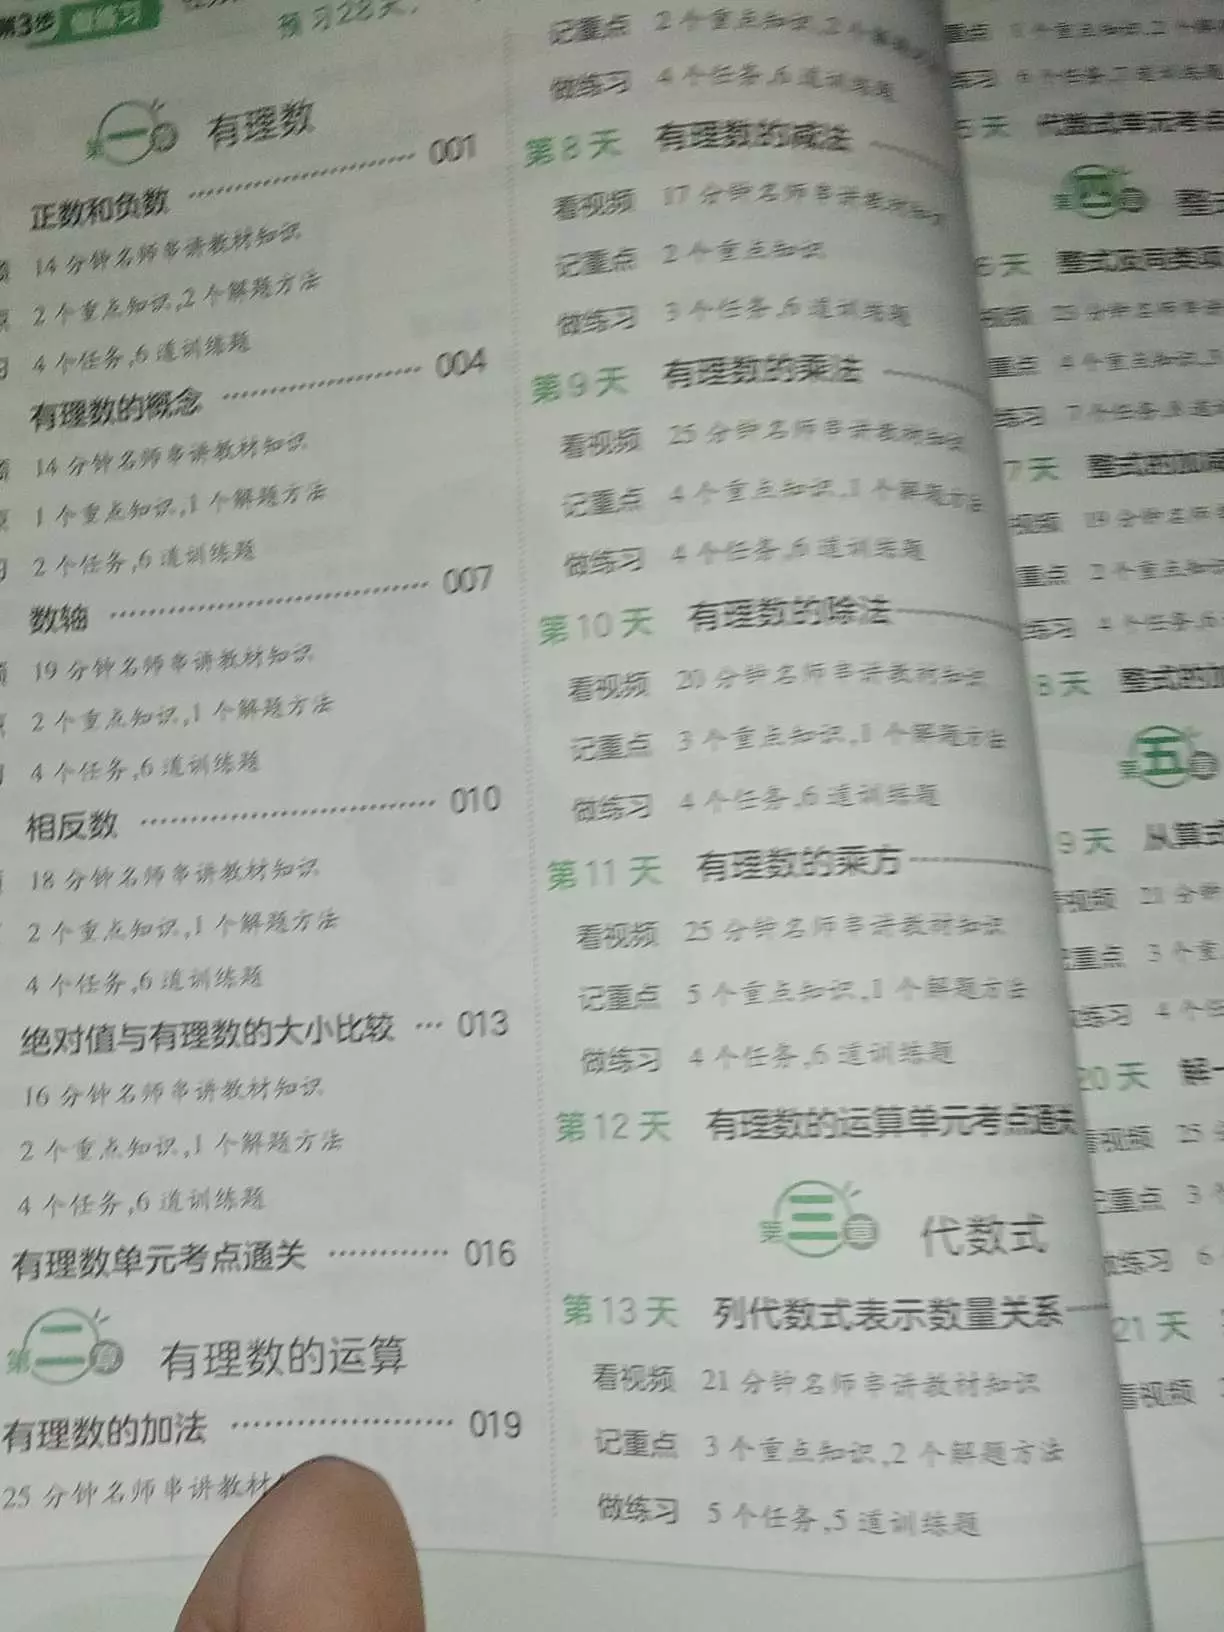 第3步
预习28天,
第一章 有理数
正数和负数 001
14分钟名师串讲教材知识
2个重点知识,2个解题方法
4个任务,6道训练题
有理数的概念 004
14分钟名师串讲教材知识
1个重点知识,1个解题方法
2个任务,6道训练题
数轴 007
19分钟名师串讲教材知识
2个重点知识,1个解题方法
4个任务,6道训练题
相反数 010
18分钟名师串讲教材知识
2个重点知识,1个解题方法
4个任务,6道训练题
绝对值与有理数的大小比较 013
16分钟名师串讲教材知识
2个重点知识,1个解题方法
4个任务,6道训练题
有理数单元考点通关 016
第二章 有理数的运算
有理数的加法 019
25分钟名师串讲教材
记重点 2个重点知识,2个
做练习 4个任务,6道训练题
第8天 有理数的减法
看视频 17分钟名师串讲教材知识
记重点 2个重点知识
做练习 3个任务,6道训练题
第9天 有理数的乘法
看视频 25分钟名师串讲教材知识
记重点 4个重点知识,1个解题方法
做练习 4个任务,6道训练题
第10天 有理数的除法
看视频 20分钟名师串讲教材知识
记重点 3个重点知识,1个解题方法
做练习 4个任务,6道训练题
第11天 有理数的乘方
看视频 25分钟名师串讲教材知识
记重点 5个重点知识,1个解题方法
做练习 4个任务,6道训练题
第12天 有理数的运算单元考点通关
第三章 代数式
第13天 列代数式表示数量关系
看视频 21分钟名师串讲教材知识
记重点 3个重点知识,2个解题方法
做练习 5个任务,5道训练题
5天 代数式单元考点
第四章 整式
6天 整式及同类项
视频 23分钟名师
重点 4个重点知识
练习 7个任务
7天 整式的加减
视频 19分钟名师
重点 2个重点知识
练习 4个任务
8天 整式的加
第五章
9天 从算式
看视频 21分钟
记重点 3个重
做练习 4个任
20天 解一
看视频 25
记重点 3个
做练习 6
21天
看视频